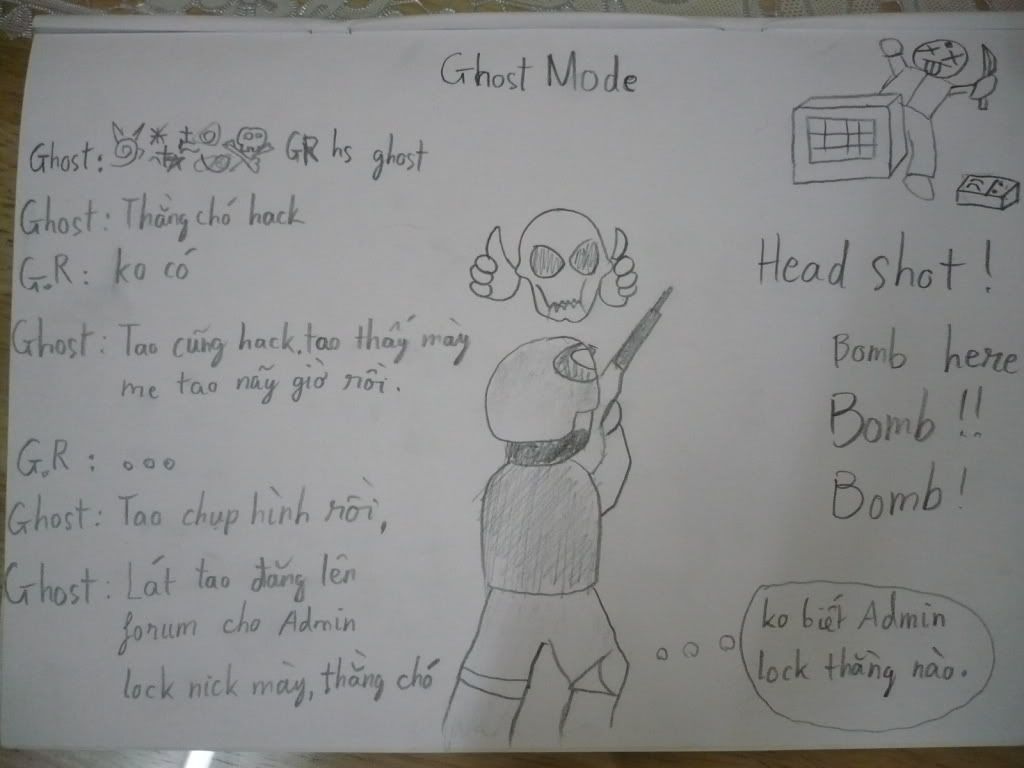 Ghost Mode
Ghost: GR hs ghost
Ghost: Thằng chó hack
G.R: ko có
Ghost: Tao cũng hack, tao thấy mày
me tao nãy giờ rồi.
G.R: ...
Ghost: Tao chụp hình rồi,
Ghost: Lát tao đăng lên
forum cho Admin
lock nick mày, thằng chó
Head shot!
Bomb here
Bomb!!
Bomb!
ko biết Admin
lock thằng nào.